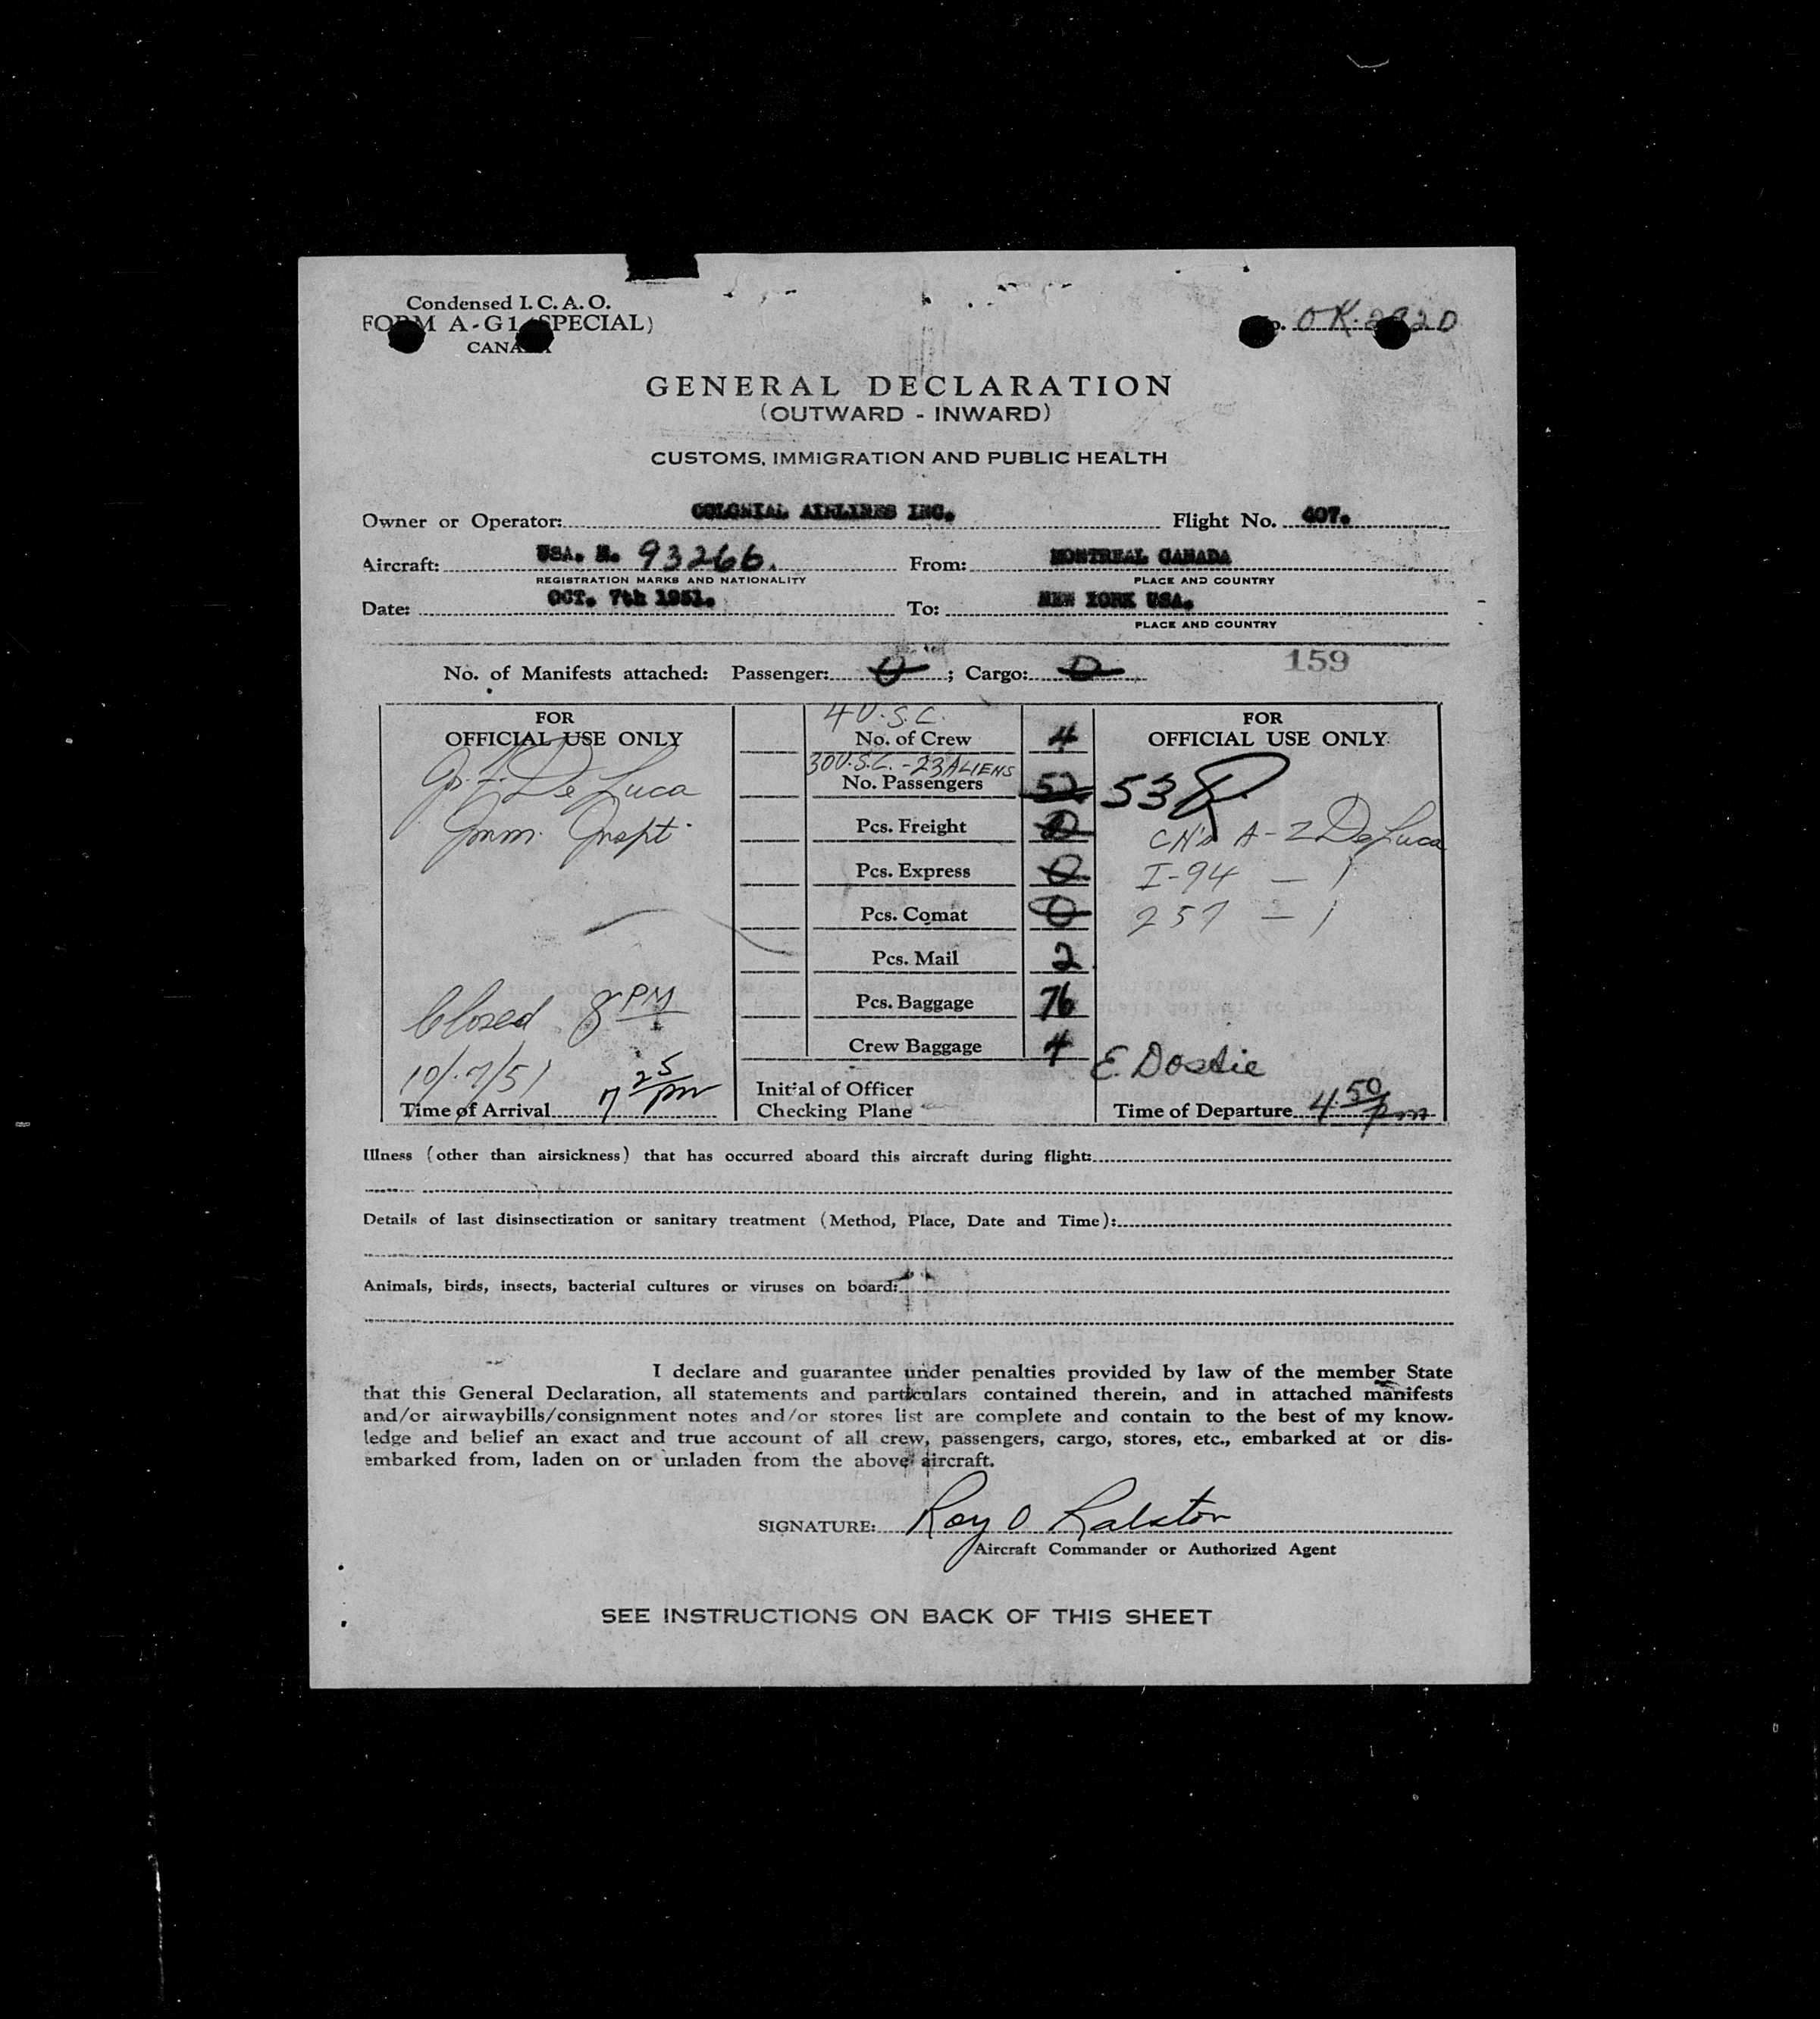 Condensed I. C. A. O.
FORM A-G1 (SPECIAL)
CANADA
GENERAL DECLARATION
(OUTWARD - INWARD)
CUSTOMS, IMMIGRATION AND PUBLIC HEALTH
Owner or Operator: COLONIAL AIRLINES INC. Flight No. 407.
Aircraft: USA. N. 93266. From: MONTREAL CANADA
REGISTRATION MARKS AND NATIONALITY PLACE AND COUNTRY
Date: OCT. 7th 1951. To: NEW YORK USA.
PLACE AND COUNTRY
159
No. of Manifests attached: Passenger: 0 ; Cargo: 0
FOR
OFFICIAL USE ONLY
De Luca
Imm. Inspt.
Closed 8 PM
10/7/51
Time of Arrival 7 25 pm
4 U.S.C.
No. of Crew 4
30 U.S.C. - 23 ALIENS
No. Passengers 52
Pcs. Freight 0
Pcs. Express 0
Pcs. Comat 0
Pcs. Mail 2
Pcs. Baggage 76
Crew Baggage 4
Initial of Officer
Checking Plane
FOR
OFFICIAL USE ONLY
53
CN's A-Z DeLuca
I-94 — 1
257 — 1
E. Dostie
Time of Departure 4 50 pm
Illness (other than airsickness) that has occurred aboard this aircraft during flight:
Details of last disinsectization or sanitary treatment (Method, Place, Date and Time):
Animals, birds, insects, bacterial cultures or viruses on board:
I declare and guarantee under penalties provided by law of the member State
that this General Declaration, all statements and particulars contained therein, and in attached manifests
and/or airwaybills/consignment notes and/or stores list are complete and contain to the best of my know-
ledge and belief an exact and true account of all crew, passengers, cargo, stores, etc., embarked at or dis-
embarked from, laden on or unladen from the above aircraft.
SIGNATURE: Roy O Ralston
Aircraft Commander or Authorized Agent
SEE INSTRUCTIONS ON BACK OF THIS SHEET